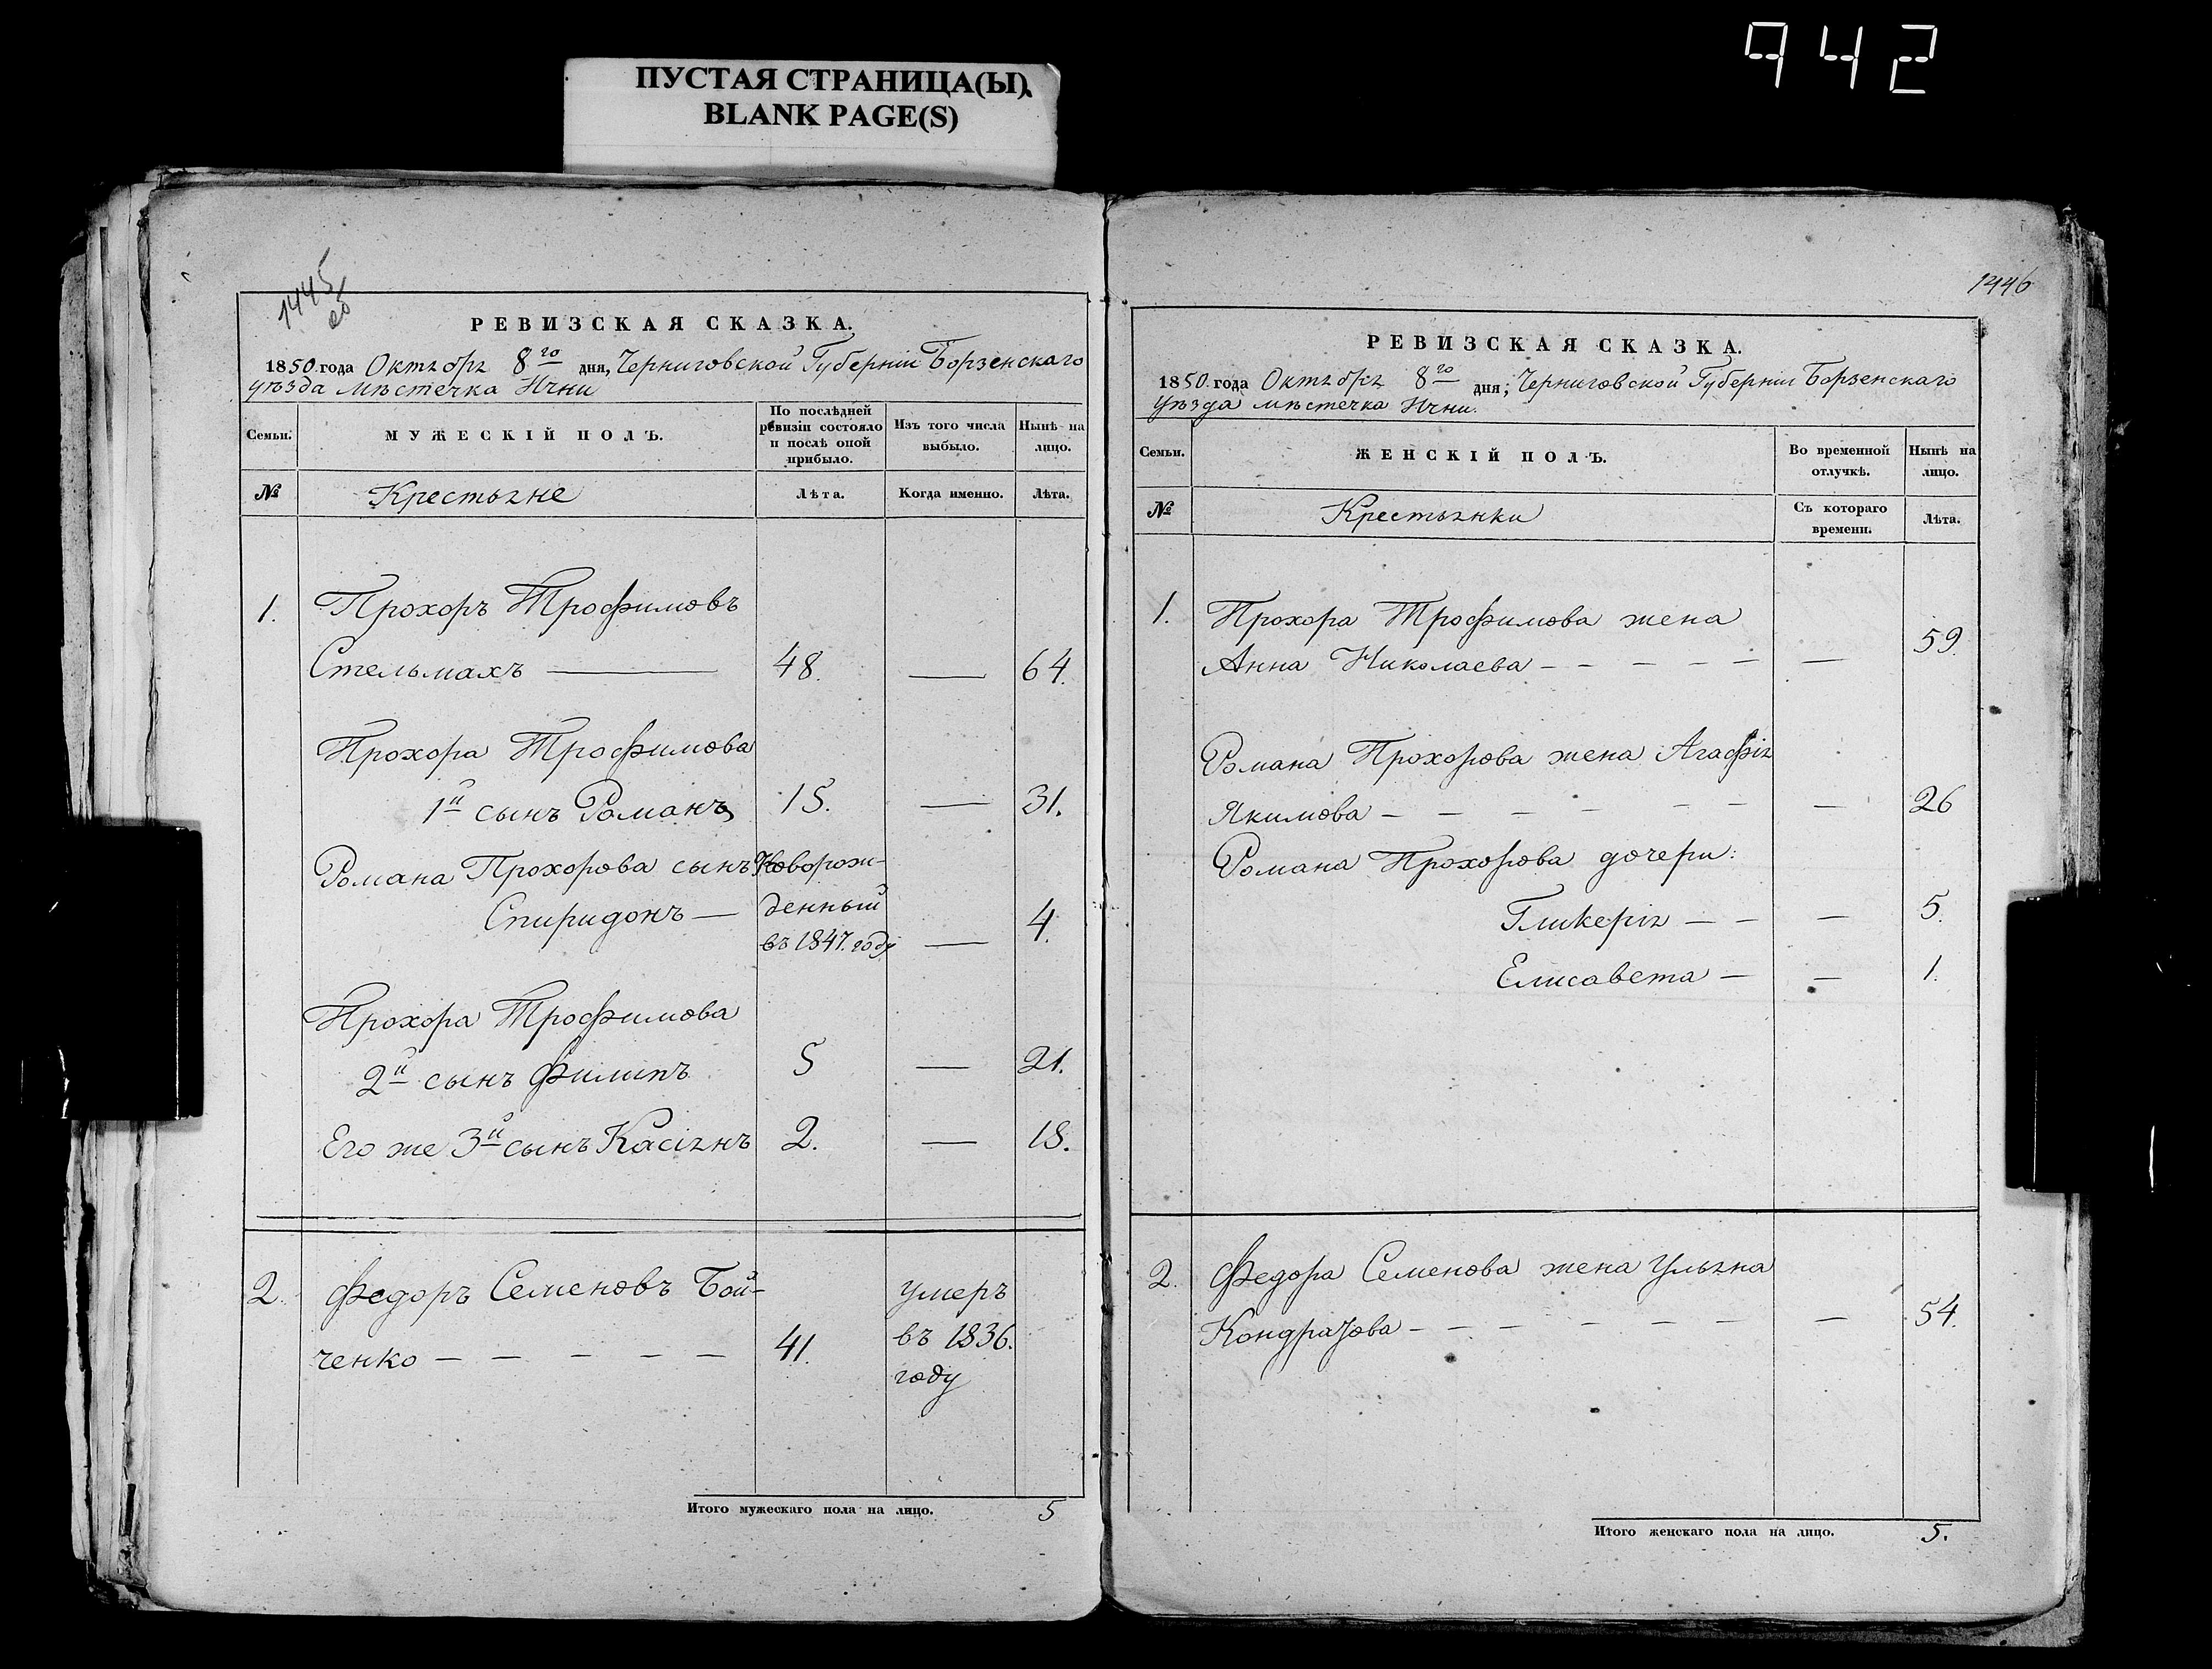 942
ПУСТАЯ СТРАНИЦА(Ы).
BLANK PAGE(S)
1445
об
РЕВИЗСКАЯ СКАЗКА.
1850. года Октября 8го дня, Черниговской Губерніи Борзенскаго
уѣзда мѣстечка Ични
Семьи.
МУЖЕСКІЙ ПОЛЪ.
По послѣдней ревизіи состояло и послѣ оной прибыло.
Изъ того числа выбыло.
Нынѣ на лицо.
№
Крестьяне
Лѣта.
Когда именно.
Лѣта.
1. Прохоръ Трофимовъ
Стельмахъ — 48. — 64.
Прохора Трофимова
1й сынъ Романъ 15. — 31.
Романа Прохорова сынъ Новорож-
Спиридонъ — денный
въ 1847. году — 4.
Прохора Трофимова
2й сынъ Филипъ 5 — 21.
Его же 3й сынъ Касіянъ 2. — 18.
2. Федоръ Семеновъ Бой- умеръ
ченко — — — — — 41. въ 1836.
году
Итого мужескаго пола на лицо. 5
1446
РЕВИЗСКАЯ СКАЗКА.
1850. года Октября 8го дня; Черниговской Губерніи Борзенскаго
Уѣзда мѣстечка Ични.
Семьи.
ЖЕНСКІЙ ПОЛЪ.
Во временной отлучкѣ.
Нынѣ на лицо.
№
Крестьянки
Съ котораго времени.
Лѣта.
1. Прохора Трофимова жена
Анна Николаева — — — — — — 59.
Романа Прохорова жена Агафія
Якимова — — — — — — 26
Романа Прохорова дочери:
Гликерія — — — 5.
Елисавета — — 1.
2. Федора Семенова жена Ульяна
Кондратова — — — — — — — 54.
Итого женскаго пола на лицо. 5.